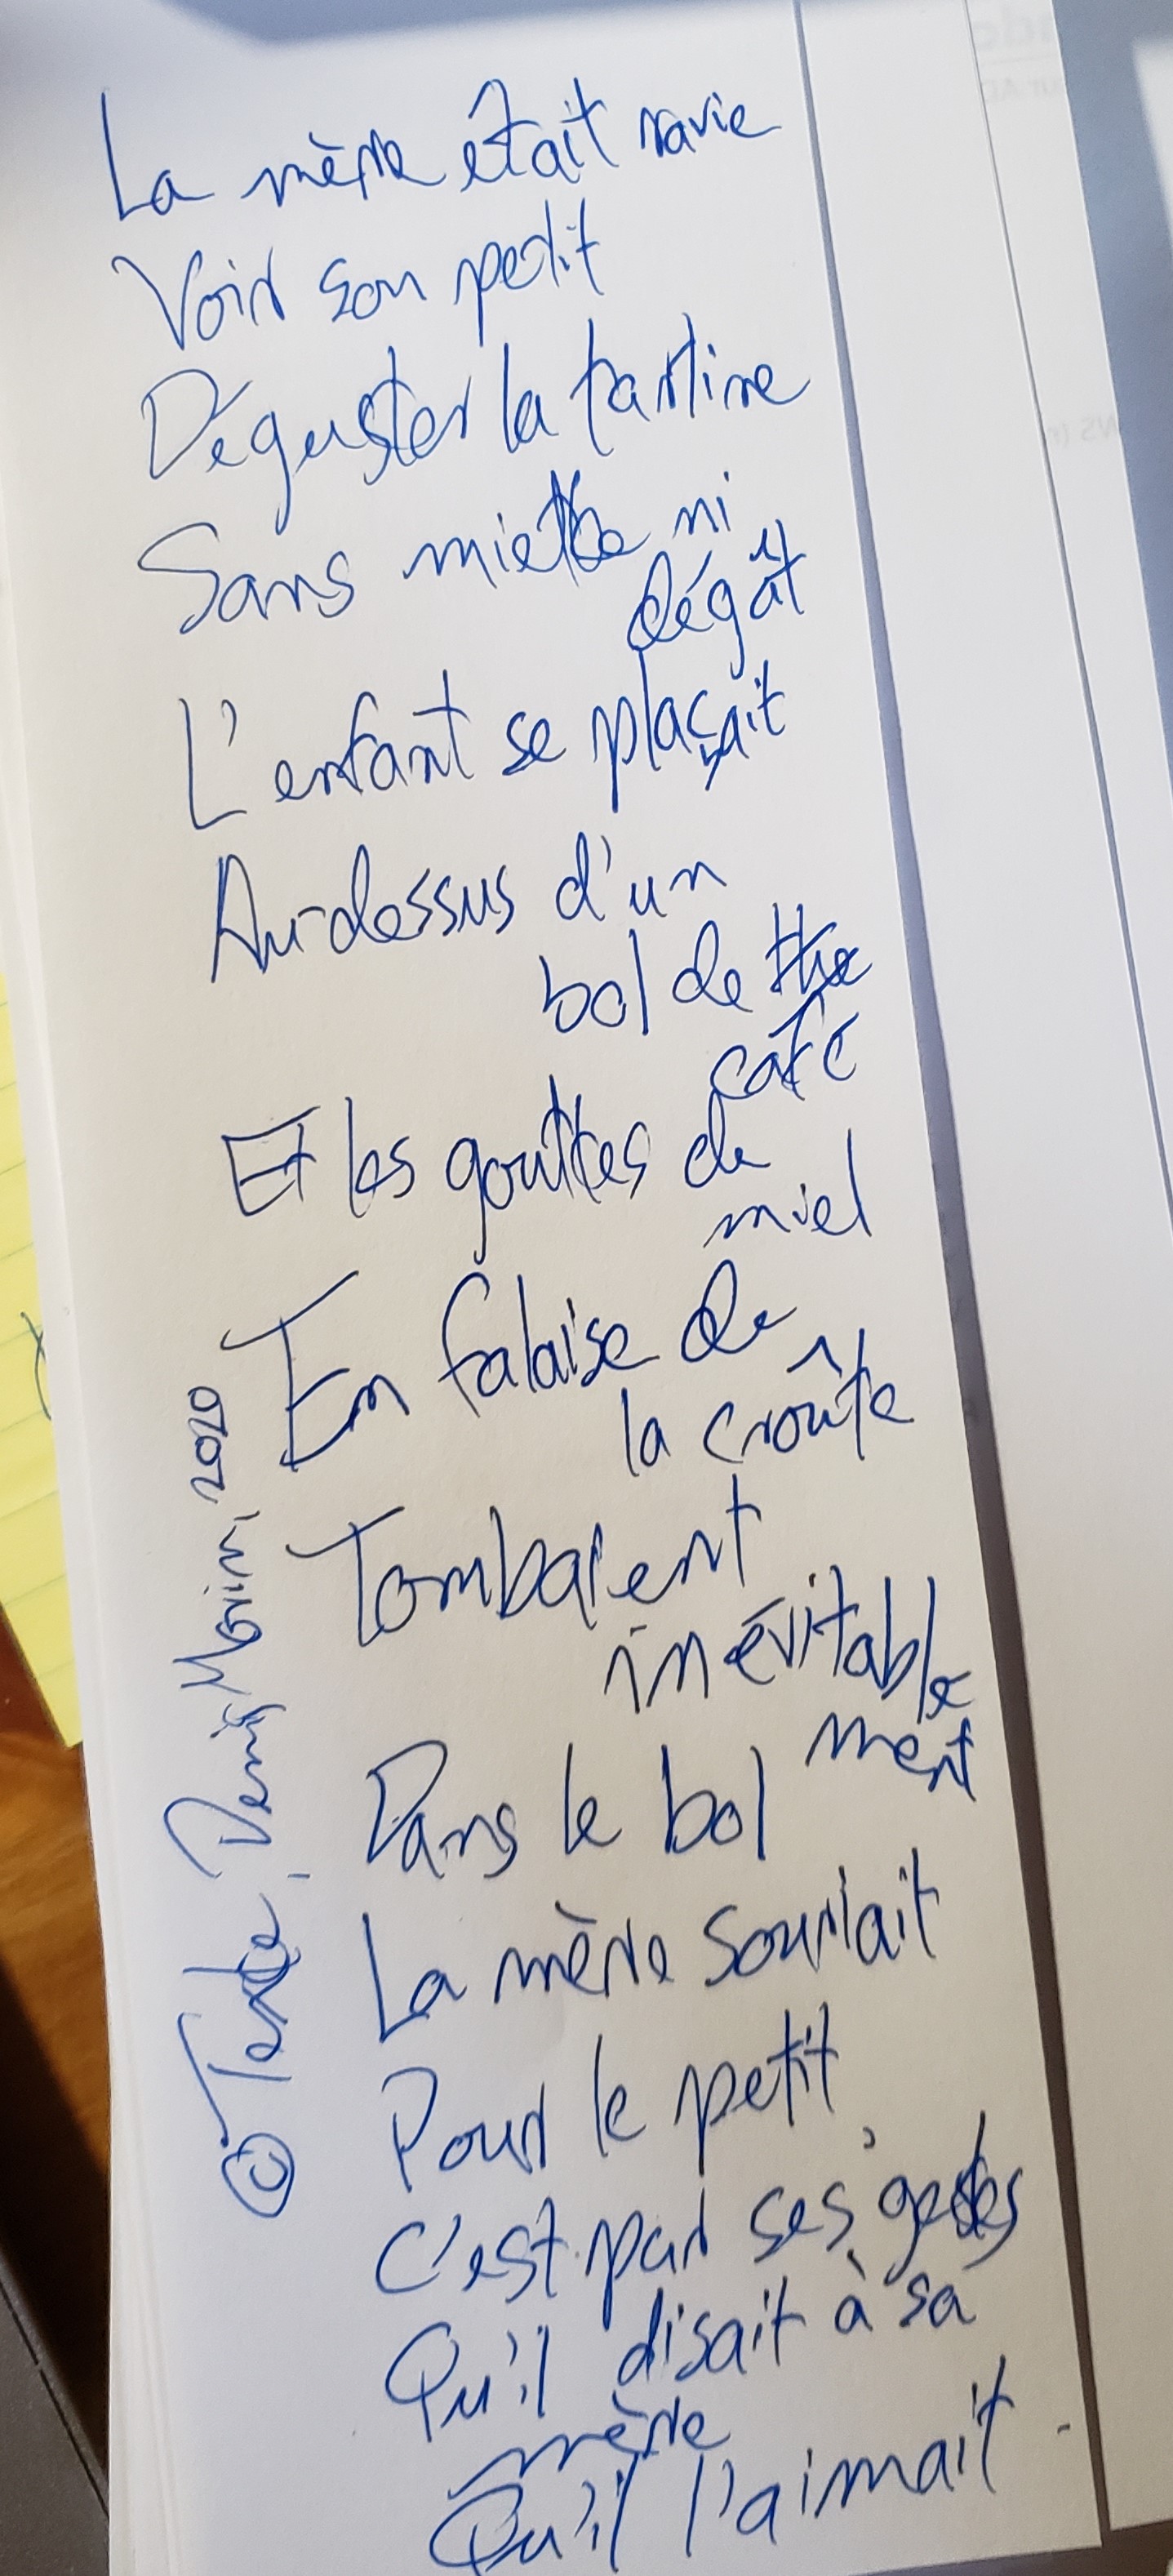 La mère était ravie
Voir son petit
Déguster la tartine
Sans miette ni
dégât
L'enfant se plaçait
Au-dessus d'un
bol de
café
Et les gouttes de
miel
En falaise de
la croûte
Tombaient
inévitable
ment
Dans le bol
La mère souriait
Pour le petit
C'est par ses gestes
Qu'il disait à sa
mère
Qu'il l'aimait.
© Denis Morin, 2020